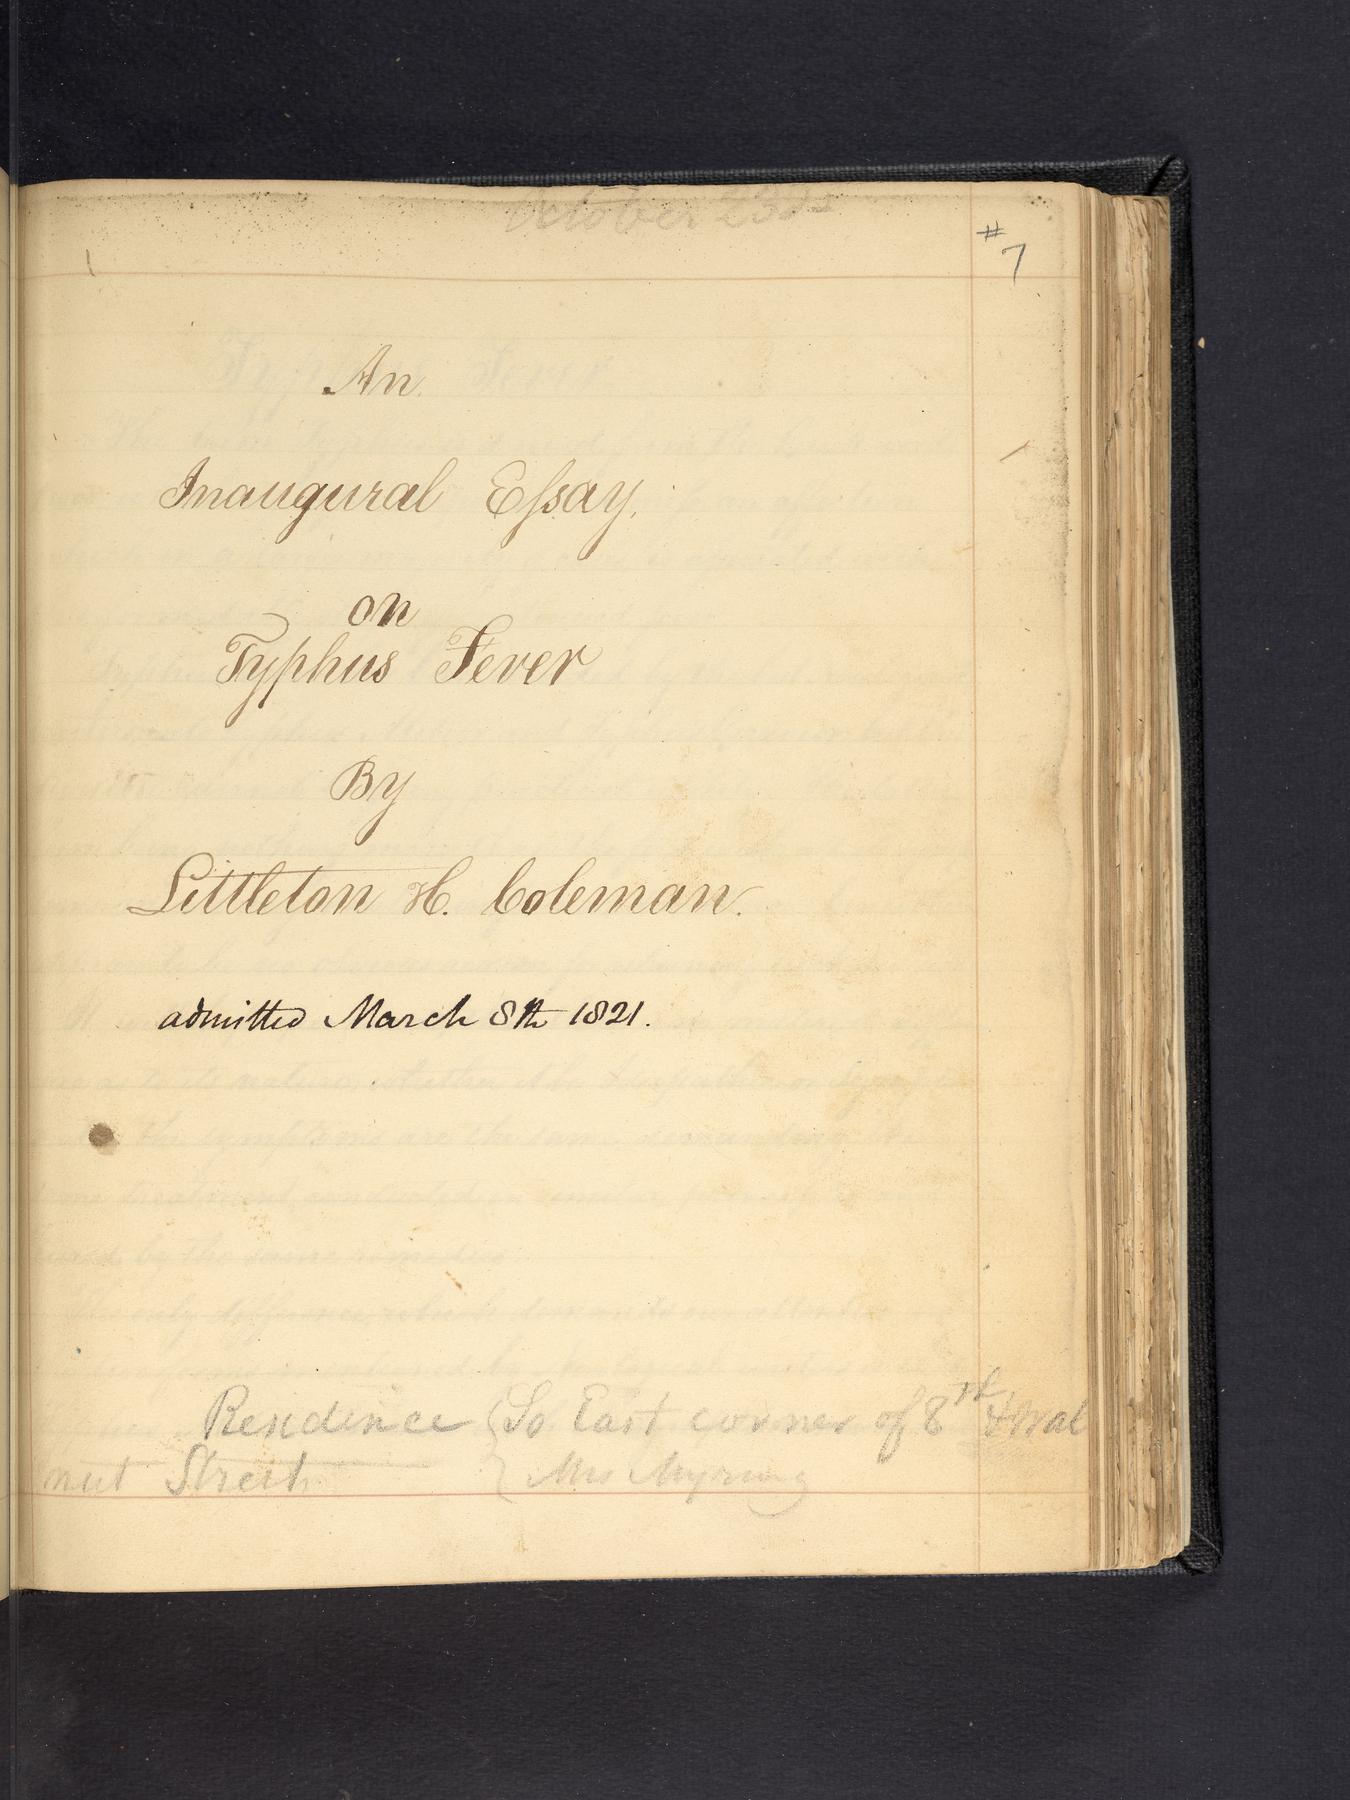 October
# 7
An
Inaugural Eſsay.
on
Typhus Fever
By
Littleton H. Coleman.
admitted March 8th 1821.
Residence So East corner of 8th & Wal
nut Street Mrs